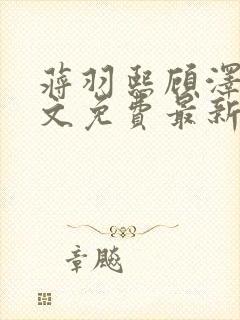 蒋羽熙顾泽
文免费最新
章飚